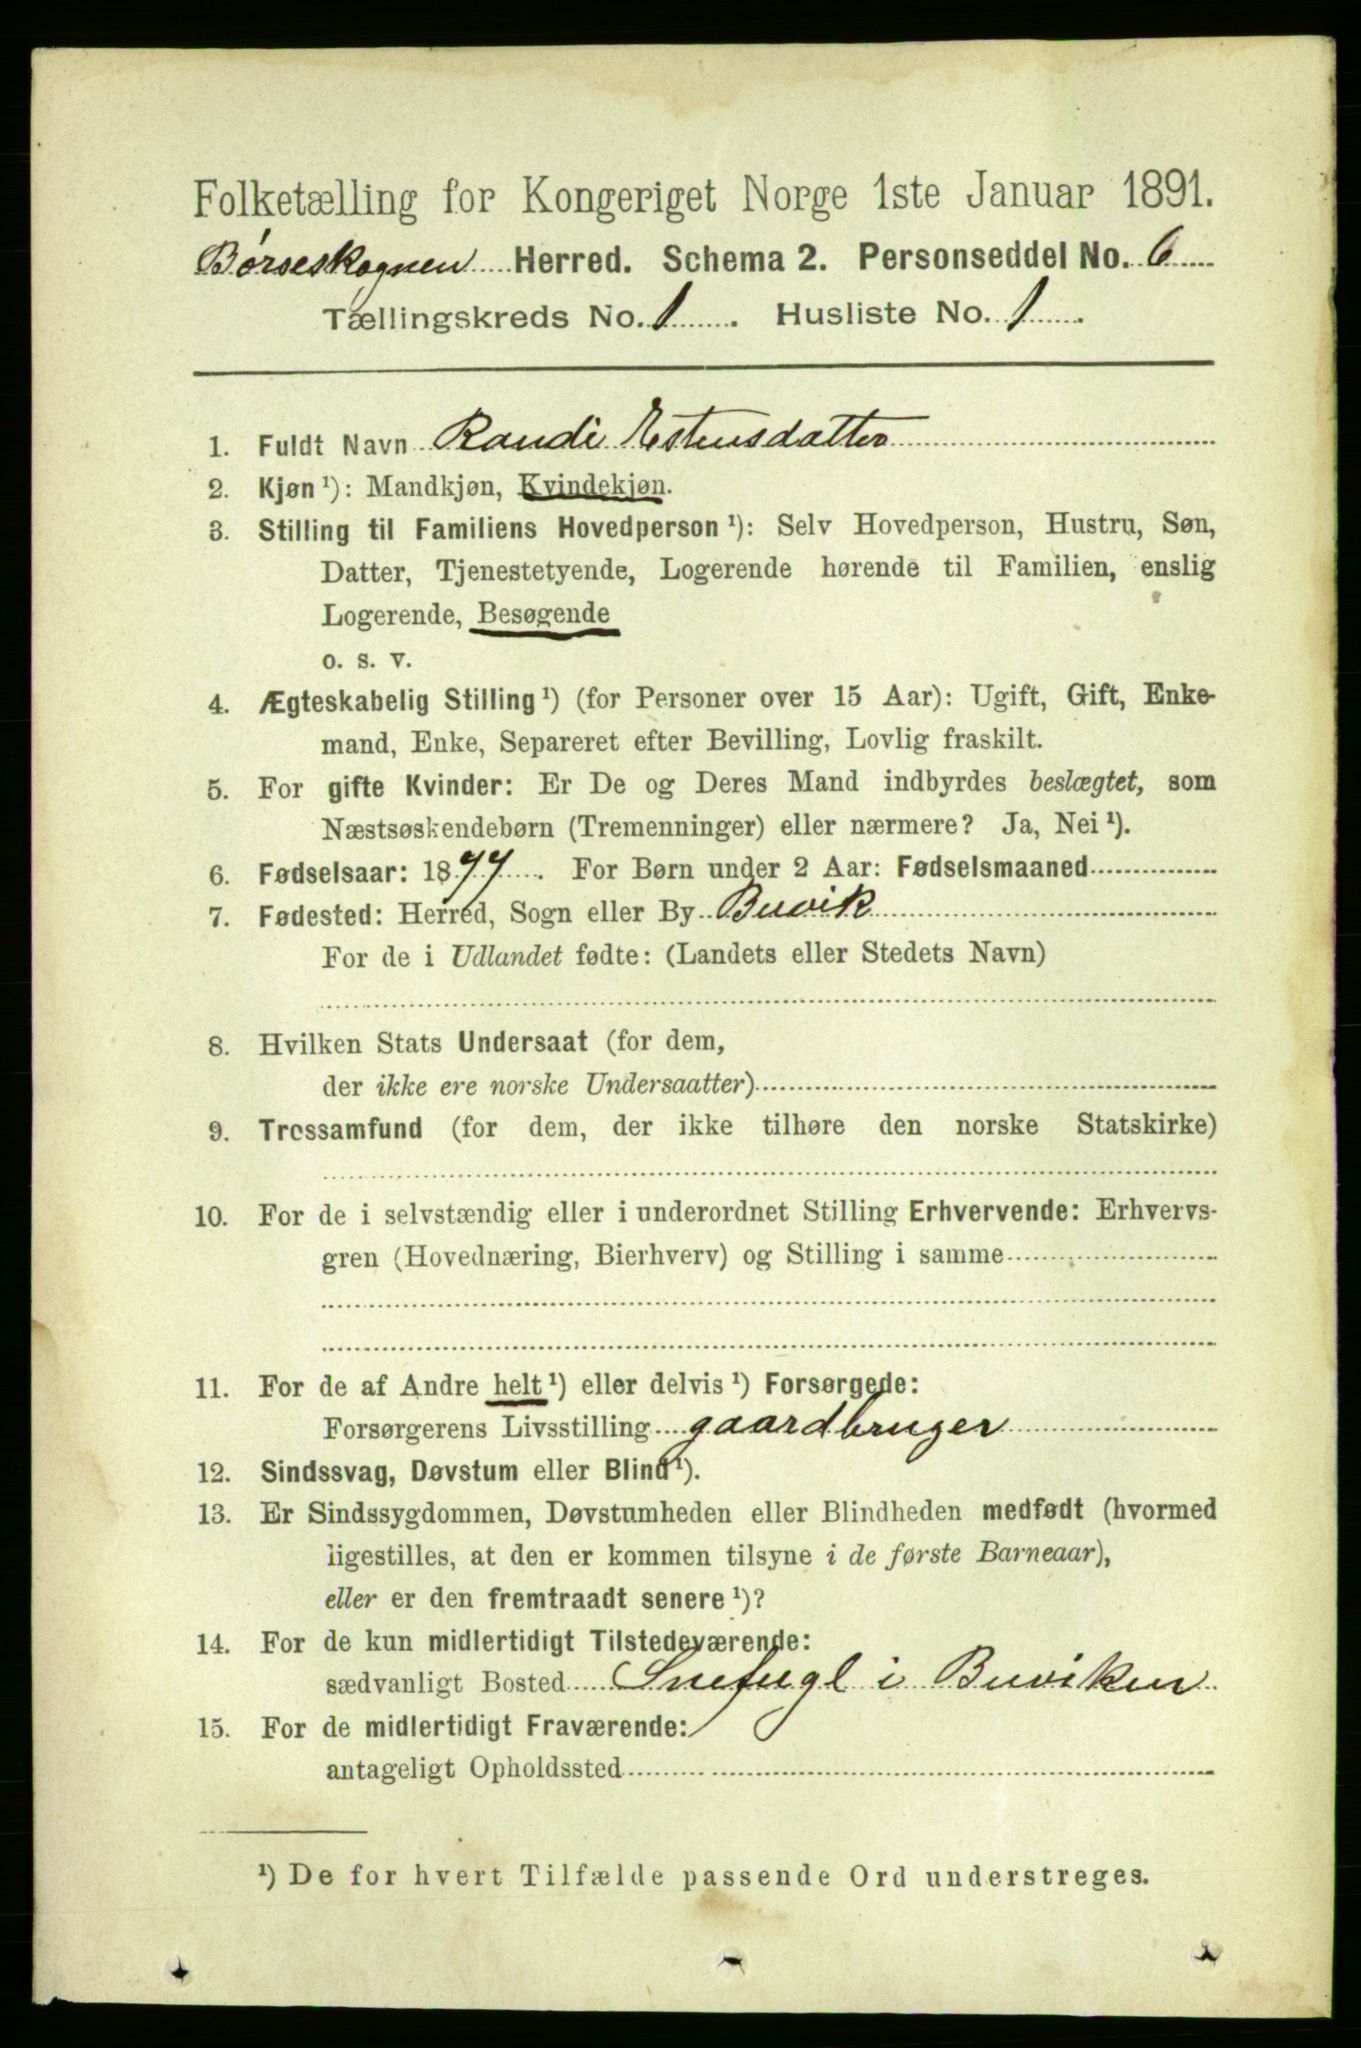 Folketælling for Kongeriget Norge 1ste Januar 1891.
Børseskognen Herred. Schema 2. Personseddel No. 6
Tællingskreds No. 1. Husliste No. 1.
1. Fuldt Navn Randi Estensdatter
2. Kjøn ¹): Mandkjøn, Kvindekjøn.
3. Stilling til Familiens Hovedperson ¹): Selv Hovedperson, Hustru, Søn,
Datter, Tjenestetyende, Logerende hørende til Familien, enslig
Logerende, Besøgende
o. s. v.
4. Ægteskabelig Stilling ¹) (for Personer over 15 Aar): Ugift, Gift, Enke-
mand, Enke, Separeret efter Bevilling, Lovlig fraskilt.
5. For gifte Kvinder: Er De og Deres Mand indbyrdes beslægtet, som
Næstsøskendebørn (Tremenninger) eller nærmere? Ja, Nei ¹).
6. Fødselsaar: 1877. For Børn under 2 Aar: Fødselsmaaned
7. Fødested: Herred, Sogn eller By Buvik
For de i Udlandet fødte: (Landets eller Stedets Navn)
8. Hvilken Stats Undersaat (for dem,
der ikke ere norske Undersaatter)
9. Trossamfund (for dem, der ikke tilhøre den norske Statskirke)
10. For de i selvstændig eller i underordnet Stilling Erhvervende: Erhvervs-
gren (Hovednæring, Bierhverv) og Stilling i samme
11. For de af Andre helt ¹) eller delvis ¹) Forsørgede:
Forsørgerens Livsstilling gaardbruger
12. Sindssvag, Døvstum eller Blind ¹).
13. Er Sindssygdommen, Døvstumheden eller Blindheden medfødt (hvormed
ligestilles, at den er kommen tilsyne i de første Barneaar),
eller er den fremtraadt senere ¹)?
14. For de kun midlertidigt Tilstedeværende:
sædvanligt Bosted Snefugl i Buviken
15. For de midlertidigt Fraværende:
antageligt Opholdssted
¹) De for hvert Tilfælde passende Ord understreges.